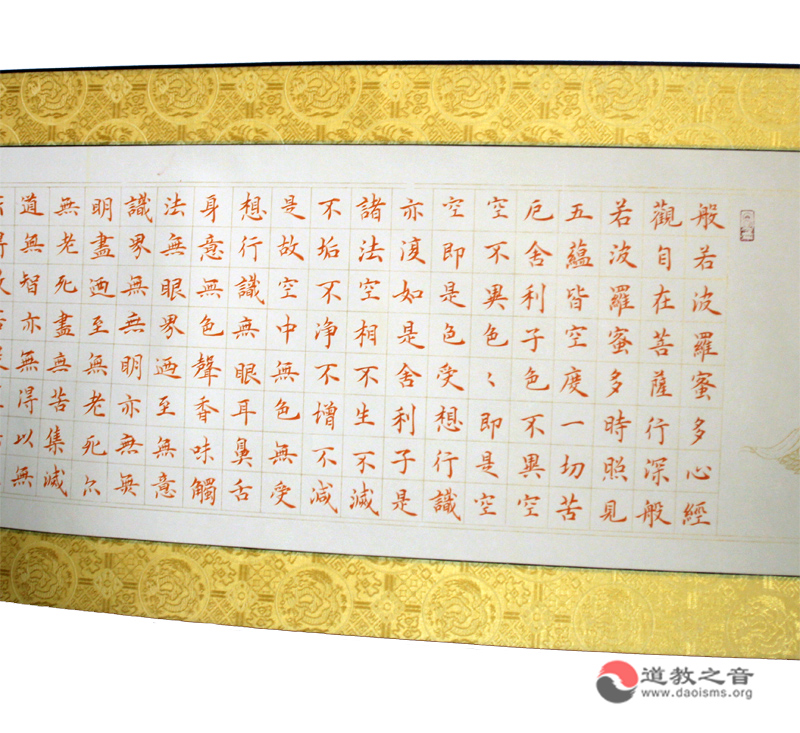 般若波羅蜜多心經
觀自在菩薩行深般
若波羅蜜多時照見
五蘊皆空度一切苦
厄舍利子色不異空
空不異色〻即是空
空即是色受想行識
亦復如是舍利子是
諸法空相不生不滅
不垢不净不增不減
是故空中無色無受
想行識無眼耳鼻舌
身意無色聲香味觸
法無眼界迺至無意
識界無無明亦無無
明盡迺至無老死亦
無老死盡無苦集滅
道無智亦無得以無
道教之音
www.daoisms.org